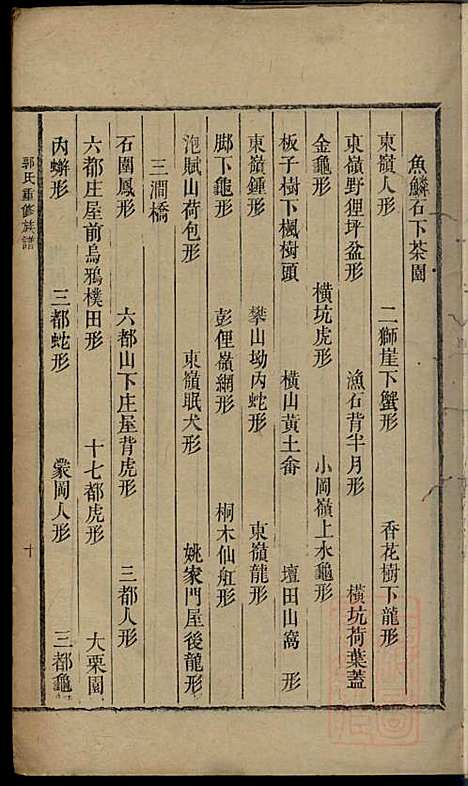 魚鱗石下茶園
東嶺人形 二獅崖下蟹形 香花樹下龍形
東嶺野狸坪盆形 漁石背半月形 橫坑荷葉蓋
金龜形 橫坑虎形 小岡嶺上水龜形
板子樹下楓樹頭 橫山黃土畬 壇田山窩 形
東嶺鍾形 攀山坳內蛇形 東嶺龍形
腳下龜形 彭俚嶺網形 桐木仙舡形
泡賦山荷包形 東嶺眠犬形 姚家門屋後龍形
三澗橋
石圍鳳形 六都山下庄屋背虎形 三都人形
六都庄屋前烏鴉樸田形 十七都虎形 大栗園
內蠏形 三都蛇形 蒙岡人形 三都龜
郭氏重修族譜 十